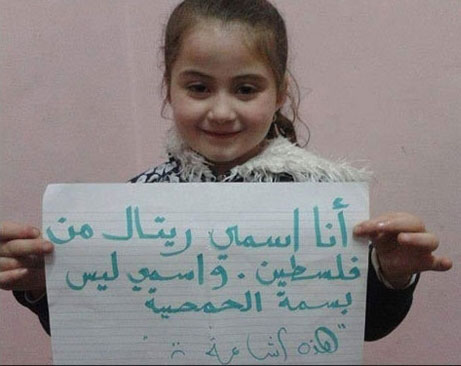 أنا اسمي ريتال من
فلسطين. واسمي ليس
بسمة الحمصية
"هذه إشاعة"